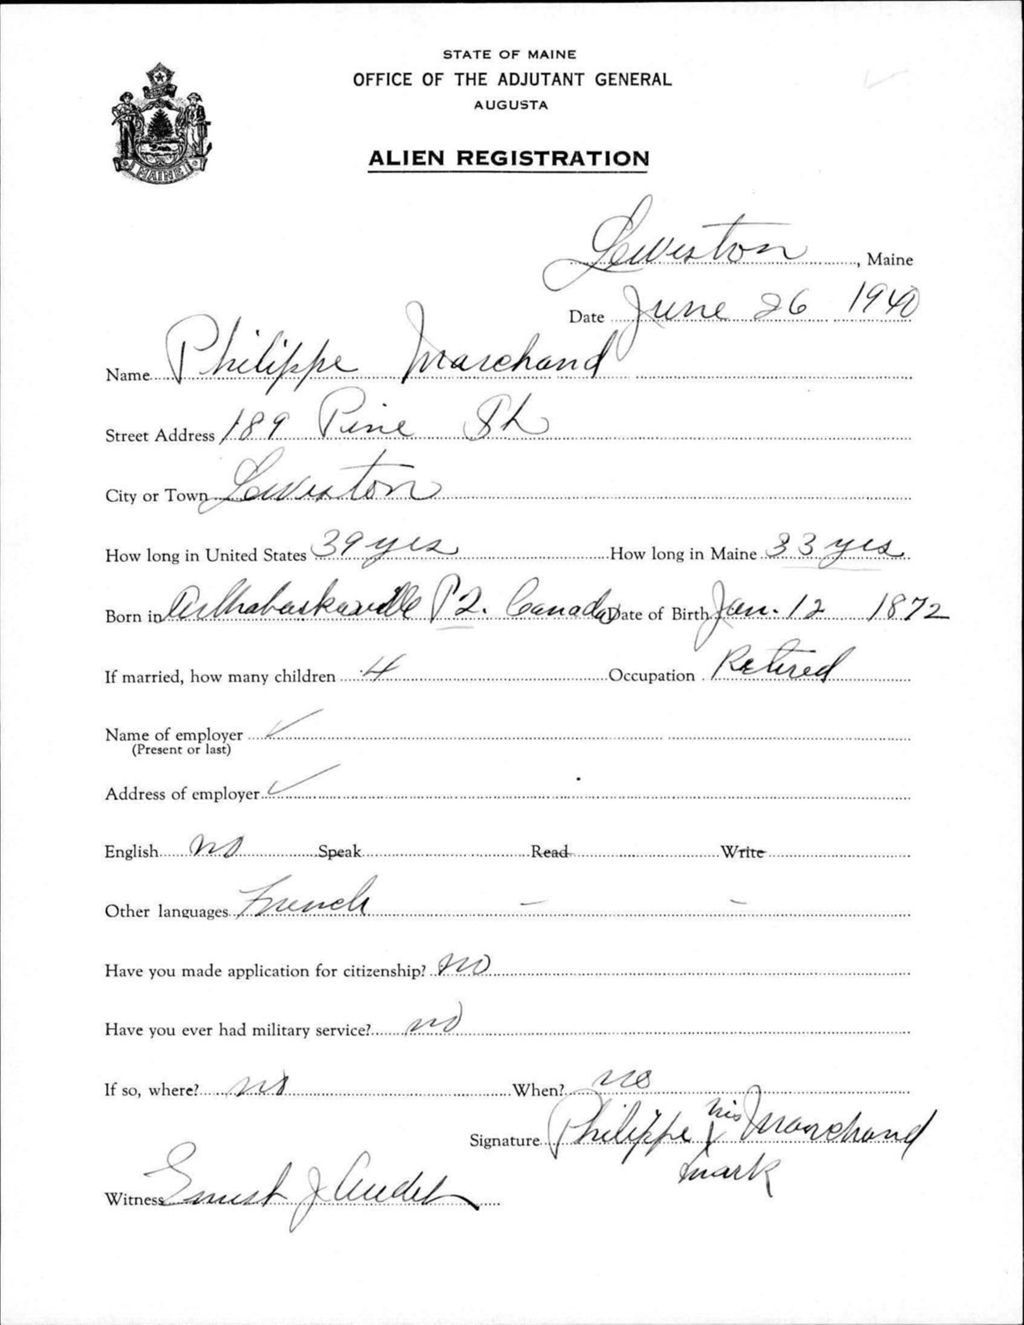 STATE OF MAINE
OFFICE OF THE ADJUTANT GENERAL
AUGUSTA
ALIEN REGISTRATION
MAINE
Lewiston, Maine
Date June 26 1940
Name Philippe Marchand
Street Address 189 Pine St
City or Town Lewiston
How long in United States 39 yrs How long in Maine 33 yrs
Born in Arthabaskaville P2. Canada Date of Birth Jan. 12 1872
If married, how many children 4 Occupation Retired
Name of employer
(Present or last)
Address of employer
English no Speak Read Write
Other languages French
Have you made application for citizenship? no
Have you ever had military service? no
If so, where? no When? no
Signature Philippe his X Marchand
mark
Witness Ernest J Audet